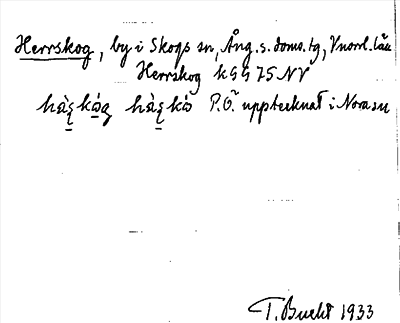 Herrskog, by i Skogs sn, Ång. s. doms. tg, Vnorrl. län
Herrskog kGG 75 NV
P.Ö. upptecknat i Nora sn
T. Bucht 1933